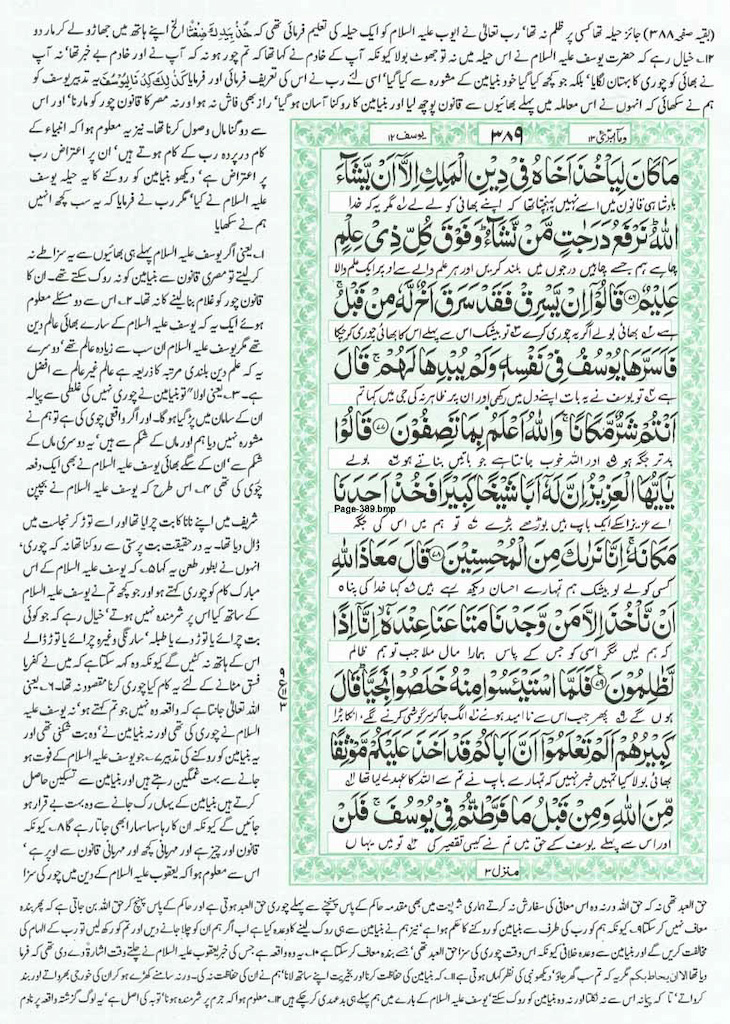 (بقیہ صفحہ ۳۸۸) جائز حیلہ تھا کسی پر ظلم نہ تھا' رب تعالیٰ نے ایوب علیہ السلام کو ایک حیلہ کی تعلیم فرمائی تھی کہ خُذْ بِيَدِكَ ضِغْثًا الخ اپنے ہاتھ میں جھاڑو لے کر مار دو
۱۲۔ خیال رہے کہ حضرت یوسف علیہ السلام نے اس حیلہ میں نہ تو جھوٹ بولا کیونکہ آپ کے خادم نے کہا تھا کہ تم چور ہو نہ کہ آپ نے اور خادم بے خبر تھا' نہ آپ
نے بھائی کو چوری کا بہتان لگایا' بلکہ جو کچھ کیا گیا خود بنیامین کے مشورہ سے کیا گیا' اسی لئے رب نے اس کی تعریف فرمائی اور فرمایا كَذٰلِكَ كِدْنَا لِيُوْسُفَ یہ تدبیر یوسف کو
ہم نے سکھائی کہ انہوں نے اس معاملہ میں پہلے بھائیوں سے قانون پوچھ لیا اور بنیامین کا روکنا آسان ہو گیا' راز بھی فاش نہ ہوا ورنہ مصر کا قانون چور کو مارنا' اور اس
سے دو گنا مال وصول کرنا تھا۔ نیز یہ معلوم ہوا کہ انبیاء کے
کام در پردہ رب کے کام ہوتے ہیں' ان پر اعتراض رب
پر اعتراض ہے' دیکھو بنیامین کو روکنے کا یہ حیلہ یوسف
علیہ السلام نے کیا' مگر رب نے فرمایا کہ یہ سب کچھ انہیں
ہم نے سکھایا
۱۔ یعنی اگر یوسف علیہ السلام پہلے ہی بھائیوں سے یہ سزا طے نہ
کر لیتے تو مصری قانون سے بنیامین کو نہ روک سکتے تھے۔ ان کا
قانون چور کو غلام بنا لینے کا نہ تھا۔ ۲۔ اس سے دو مسئلے معلوم
ہوئے ایک یہ کہ یوسف علیہ السلام کے سارے بھائی عالم دین
تھے مگر یوسف علیہ السلام ان سب سے زیادہ عالم تھے' دوسرے
یہ کہ علم دین بلندی مرتبہ کا ذریعہ ہے عالم غیر عالم سے افضل
ہے۔ ۳۔ یعنی اولا" تو بنیامین نے چوری نہیں کی غلطی سے پیالہ
ان کے سامان میں پڑ گیا ہو گا۔ اور اگر واقعی چوری کی ہے تو ہم نے
مشورہ نہیں دیا ہم اور ماں کے شکم سے ہیں' یہ دوسری ماں کے
شکم سے' ان کے سگے بھائی یوسف علیہ السلام نے بھی ایک دفعہ
چوری کی تھی ۴۔ اس طرح کہ یوسف علیہ السلام نے بچپن
شریف میں اپنے نانا کا بت چرا لیا تھا اور اسے توڑ کر نجاست میں
ڈال دیا تھا۔ یہ در حقیقت بت پرستی سے روکنا تھا نہ کہ چوری'
انہوں نے بطور طعن یہ کہا ۵۔ کہ یوسف علیہ السلام کے اس
مبارک کام کو چوری کہتے ہو اور جو کچھ تم نے یوسف علیہ السلام
کے ساتھ کیا اس پر شرمندہ نہیں ہوتے' خیال رہے کہ جو کوئی
بت چرائے یا توڑ دے یا طبلہ' سارنگی وغیرہ چرائے یا توڑ ڈالے
اس کے ہاتھ نہ کٹیں گے کیونکہ وہ کہہ سکتا ہے کہ میں نے کفر یا
فسق مٹانے کے لئے یہ کام کیا چوری کرنا مقصود نہ تھا۔ ۶۔ یعنی
اللہ تعالیٰ جانتا ہے کہ واقعہ وہ نہیں جو تم کہتے ہو' نہ یوسف علیہ
السلام نے چوری کی تھی اور نہ بنیامین نے' وہ بت شکنی تھی اور
یہ بنیامین کو روکنے کی تدبیر ۷۔ جو یوسف علیہ السلام کے فوت ہو
جانے سے بہت غمگین رہتے ہیں اور بنیامین سے تسکین حاصل
کرتے ہیں بنیامین کے یہاں رک جانے سے وہ بہت بے قرار ہو
جائیں گے کیونکہ ان کا رہا سہا سہارا بھی جاتا رہے گا ۸۔ کیونکہ
قانون اور چیز ہے اور مہربانی کچھ اور مہربانی قانون سے اوپر ہے'
اس سے معلوم ہوا کہ یعقوب علیہ السلام کے دین میں چور کی سزا
وما ابرئ ۱۳
۳۸۹
یوسف ۱۲
مَا كَانَ لِيَأْخُذَ اَخَاهُ فِيْ دِيْنِ الْمَلِكِ اِلَّاۤ اَنْ يَّشَآءَ
بادشاہی قانون میں اسے نہیں پہنچتا تھا کہ اپنے بھائی کو لے لے ۱ مگر یہ کہ خدا
اللّٰهُ نَرْفَعُ دَرَجٰتٍ مَّنْ نَّشَآءُ وَفَوْقَ كُلِّ ذِيْ عِلْمٍ
چاہے ہم جسے چاہیں درجوں میں بلند کریں اور ہر علم والے سے اوپر ایک علم والا
عَلِيْمٌ ۷۶ قَالُوْۤا اِنْ يَّسْرِقْ فَقَدْ سَرَقَ اَخٌ لَّهٗ مِنْ قَبْلُ
ہے ۲ بھائی بولے اگر یہ چوری کرے ۳ تو بیشک اس سے پہلے اس کا بھائی چوری کر چکا
فَاَسَرَّهَا يُوْسُفُ فِيْ نَفْسِهٖ وَلَمْ يُبْدِهَا لَهُمْ قَالَ
ہے ۴ تو یوسف نے یہ بات اپنے دل میں رکھی اور ان پر ظاہر نہ کی جی میں کہا تم
اَنْتُمْ شَرٌّ مَّكَانًا وَاللّٰهُ اَعْلَمُ بِمَا تَصِفُوْنَ ۷۷ قَالُوْا
بدتر جگہ ہو ۵ اور اللہ خوب جانتا ہے جو باتیں بناتے ہو ۶ بولے
يٰۤاَيُّهَا الْعَزِيْزُ اِنَّ لَهٗۤ اَبًا شَيْخًا كَبِيْرًا فَخُذْ اَحَدَنَا
Page-389.bmp
اے عزیز اسکے ایک باپ ہیں بوڑھے بڑے ۷ تو ہم میں اس کی جگہ
مَكَانَهٗ اِنَّا نَرٰىكَ مِنَ الْمُحْسِنِيْنَ ۷۸ قَالَ مَعَاذَ اللّٰهِ
کسی کو لے لو بیشک ہم تمہارے احسان دیکھ رہے ہیں ۸ کہا خدا کی پناہ
اَنْ نَّاْخُذَ اِلَّا مَنْ وَّجَدْنَا مَتَاعَنَا عِنْدَهٗۤ اِنَّاۤ اِذًا
کہ ہم لیں مگر اسی کو جس کے پاس ہمارا مال ملا جب تو ہم ظالم
لَّظٰلِمُوْنَ ۷۹ فَلَمَّا اسْتَيْـَٔسُوْا مِنْهُ خَلَصُوْا نَجِيًّا قَالَ
ہوں گے ۹ پھر جب اس سے ناامید ہوئے ۱۰ الگ جا کر سرگوشی کرنے لگے' انکا بڑا
كَبِيْرُهُمْ اَلَمْ تَعْلَمُوْۤا اَنَّ اَبَاكُمْ قَدْ اَخَذَ عَلَيْكُمْ مَّوْثِقًا
بھائی بولا کیا تمہیں خبر نہیں کہ تمہارے باپ نے تم سے اللہ کا عہد لے لیا تھا ۱۱
مِّنَ اللّٰهِ وَمِنْ قَبْلُ مَا فَرَّطْتُّمْ فِيْ يُوْسُفَ فَلَنْ
اور اس سے پہلے یوسف کے حق میں تم نے کیسی تقصیر کی ۱۲ تو میں یہاں
منزل ۳
حق العبد تھی نہ کہ حق اللہ ورنہ وہ اس معافی کی سفارش نہ کرتے ہماری شریعت میں بھی مقدمہ حاکم کے پاس پہنچنے سے پہلے چوری حق العبد ہوتی ہے اور حاکم کے پاس پہنچ کر حق اللہ بن جاتی ہے کہ پھر بندہ
معاف نہیں کر سکتا ۹۔ کیونکہ ہم کو رب کی طرف سے بنیامین کو روکنے کا حکم ہوا ہے' نیز ہم نے بنیامین سے ہی روک لینے کا وعدہ کیا ہے اب اگر ہم ان کو چلا جانے دیں اور تم کو رکھ لیں تو رب کے الہام کی
مخالفت کریں گے اور بنیامین سے وعدہ خلافی کیونکہ اس وقت چوری کی سزا حق العبد تھی' جسے بندہ معاف کر سکتا ہے ۱۰۔ یہ وہ واقعہ ہے جس کی خبر یعقوب علیہ السلام نے چلتے وقت اشارۃ دے دی تھی کہ فرما
دیا تھا الا ان يحاط بكم مگر یہ کہ تم سب گھر جاؤ' دیکھو نبی کی نظر کہاں ہوتی ہے ۱۱۔ کہ بنیامین کی حفاظت کرنا اور بخیریت اپنے ساتھ لانا' ہم نے ان کی حفاظت نہ کی۔ ورنہ سامنے کھڑے ہو کر ان کی خورجی بھرواتے اور بند
کرواتے' تا کہ پیمانہ اس سے نہ نکلتا اور نہ وہ بنیامین کو روک سکتے' یوسف علیہ السلام کے بارے میں ہم پہلے ہی بدعہدی کر چکے ہیں ۱۲۔ معلوم ہوا کہ جرم پر شرمندہ ہونا' توبہ کی اصل ہے' یہ لوگ گزشتہ واقعہ پر نادم